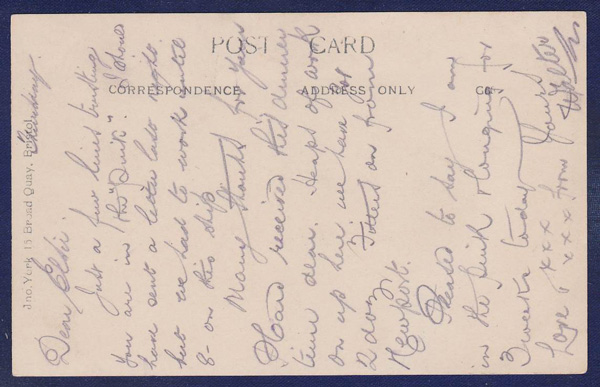 POST CARD
CORRESPONDENCE
ADDRESS ONLY
Jno. York 15 Broad Quay, Bristol.
Thursday.
Dear Elsie
Just a few lines trusting
you are in "the pink". I should
have sent a letter last night.
but we had to work until
8- on this ship
Many thanks for your
P/Card received this dinner
time dear. Heaps of work
on up here we have got
2 doz Fitters on from
Newport.
Pleased to say I am
in the pink &
3 weeks today. Yours
Love & xxx from Walter